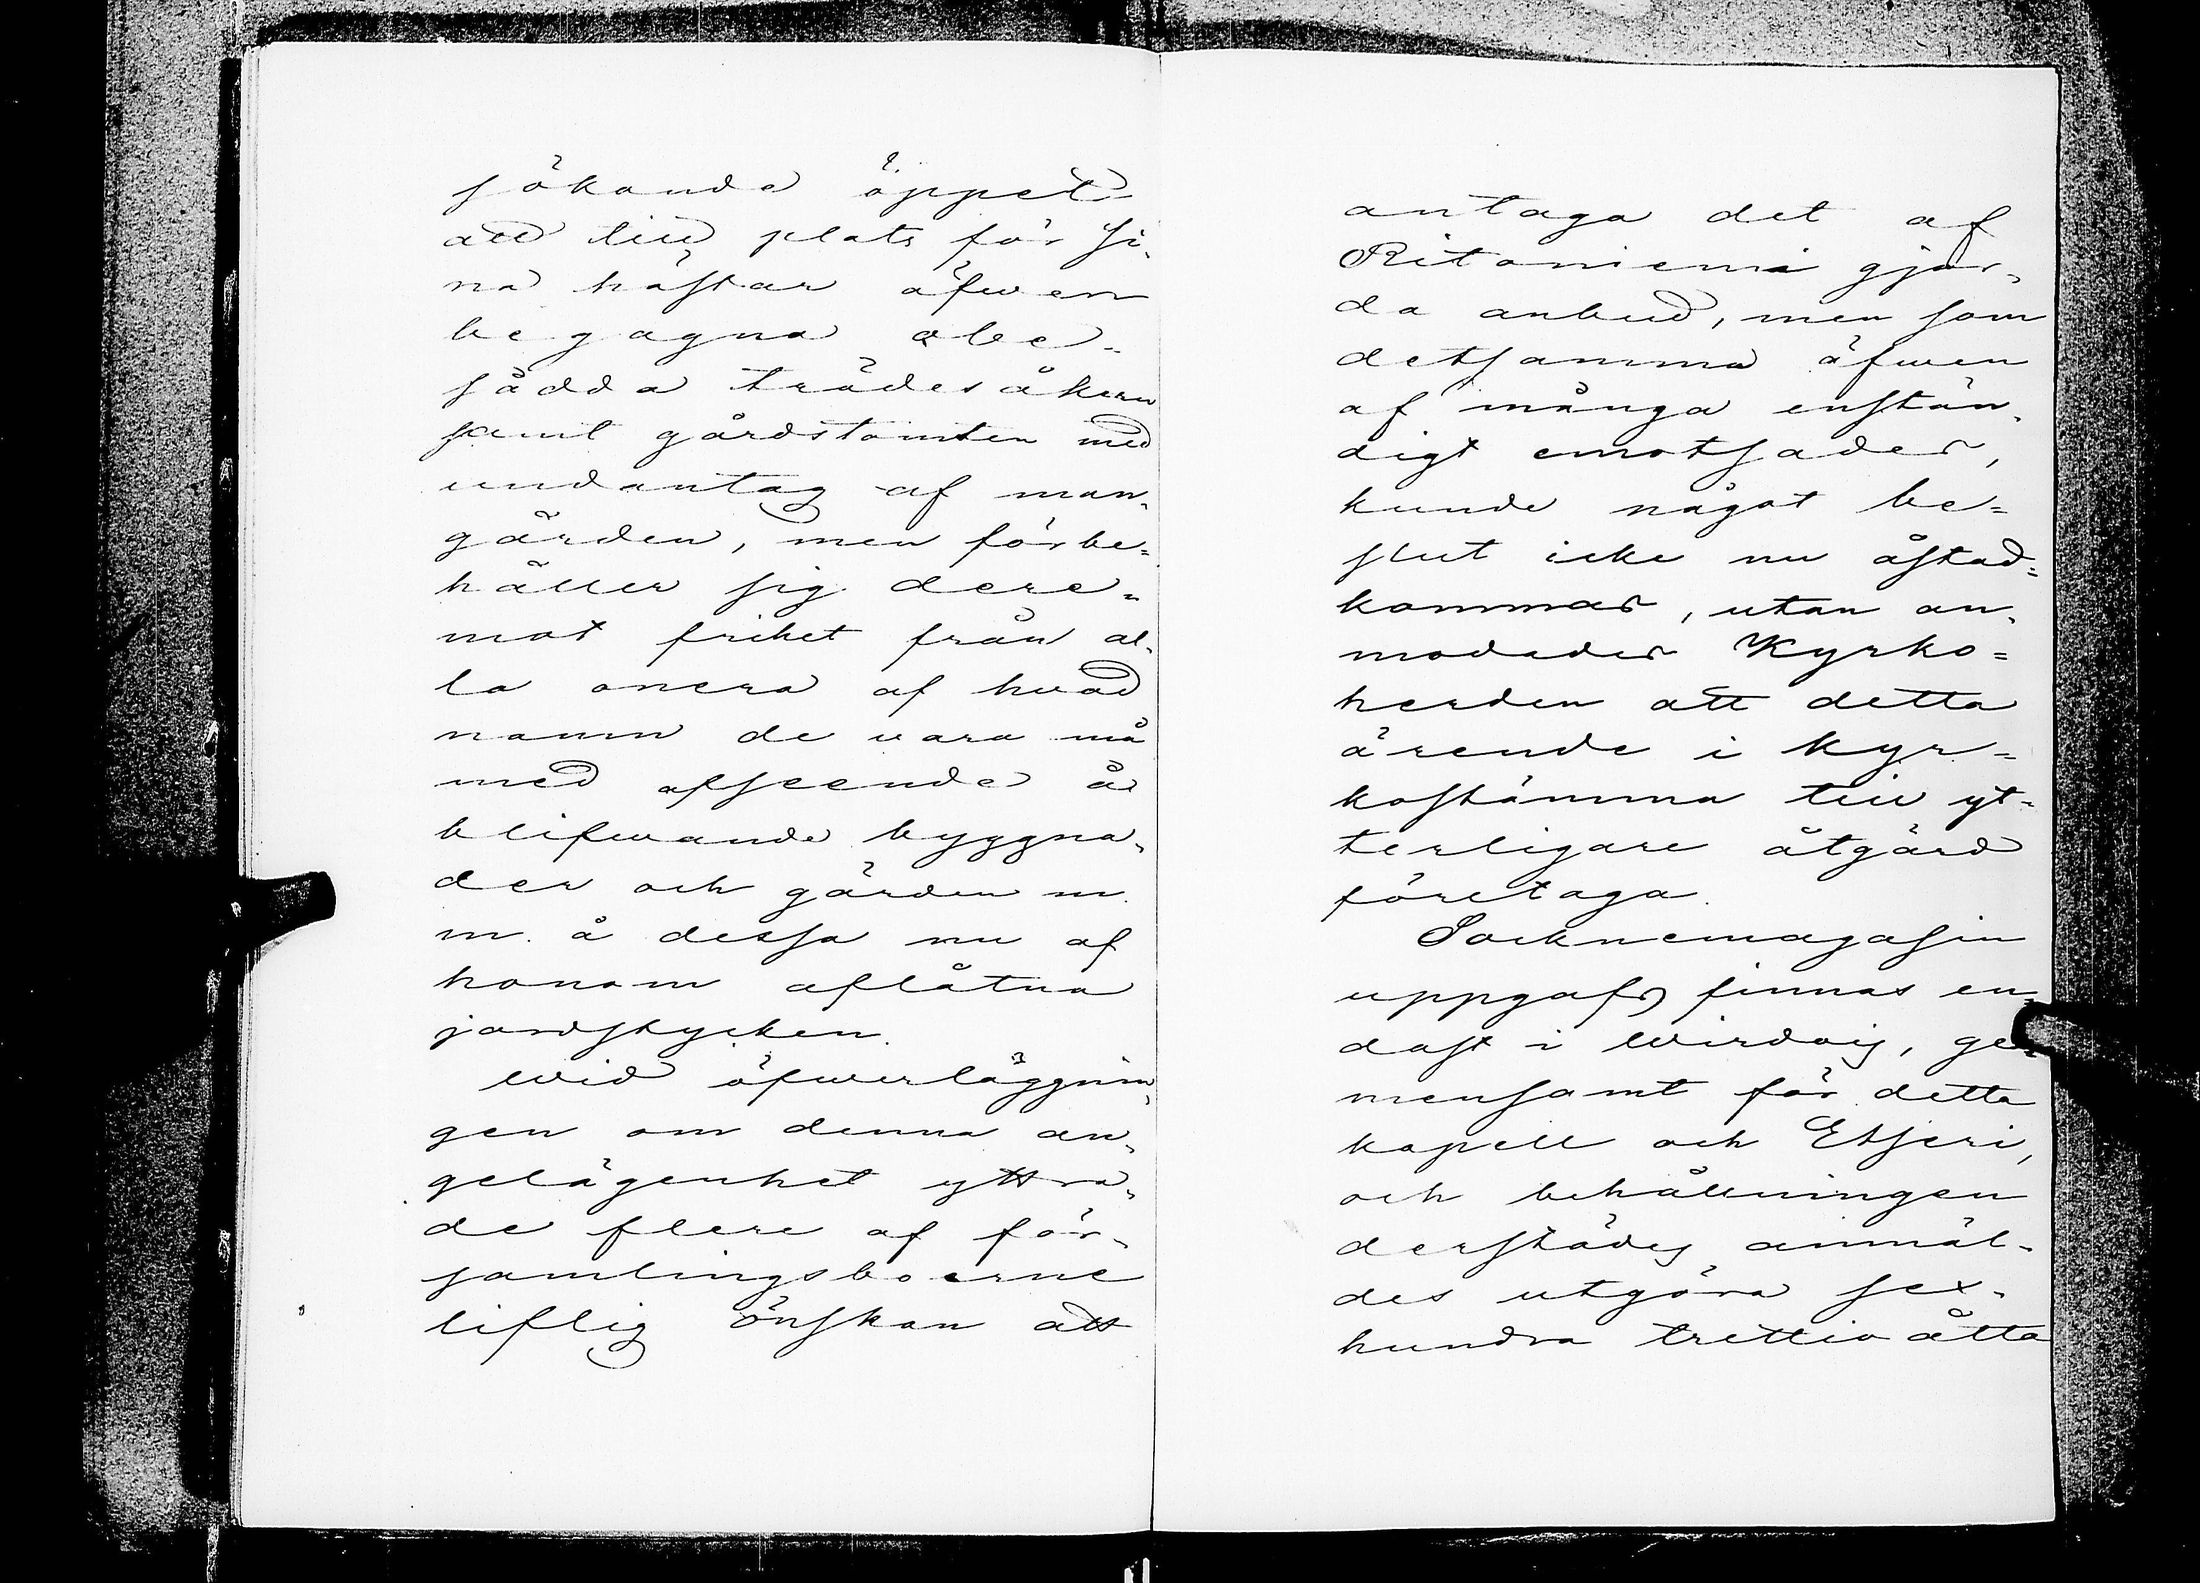 sökande öppet
att till plats för si-
na hästar äfwen
begagna obe-
sådda trädesåkern
samt gårdstomten med
undantag af man-
gården, men förbe-
håller sig dere-
mot frihet från al-
la onera af hvad
namn de vara må
med afseende å
blifwande byggna-
der och gården m.
m. å dessa nu af
honom aflåtna
jordstycken.
Wid öfwerläggnin-
gen om denna an-
gelägenhet yttra-
de flere af för-
samlingsboerne
liflig önskan att
antaga det af
Ritoniemi gjor-
da anbud, men som
detsamma äfwen
af många enstän-
digt emotsades,
kunde något be-
slut icke nu åstad-
kommas, utan an-
modades Kyrko-
herden att detta
ärende i kyr-
kostämma till yt-
terligare åtgärd
företaga.
Socknemagasin
uppgafs finnas en-
dast i Wirdois, ge-
mensamt för detta
kapell och Etseri,
och behållningen
derstädes anmäl-
des utgöra sex-
hundra trettio åtta